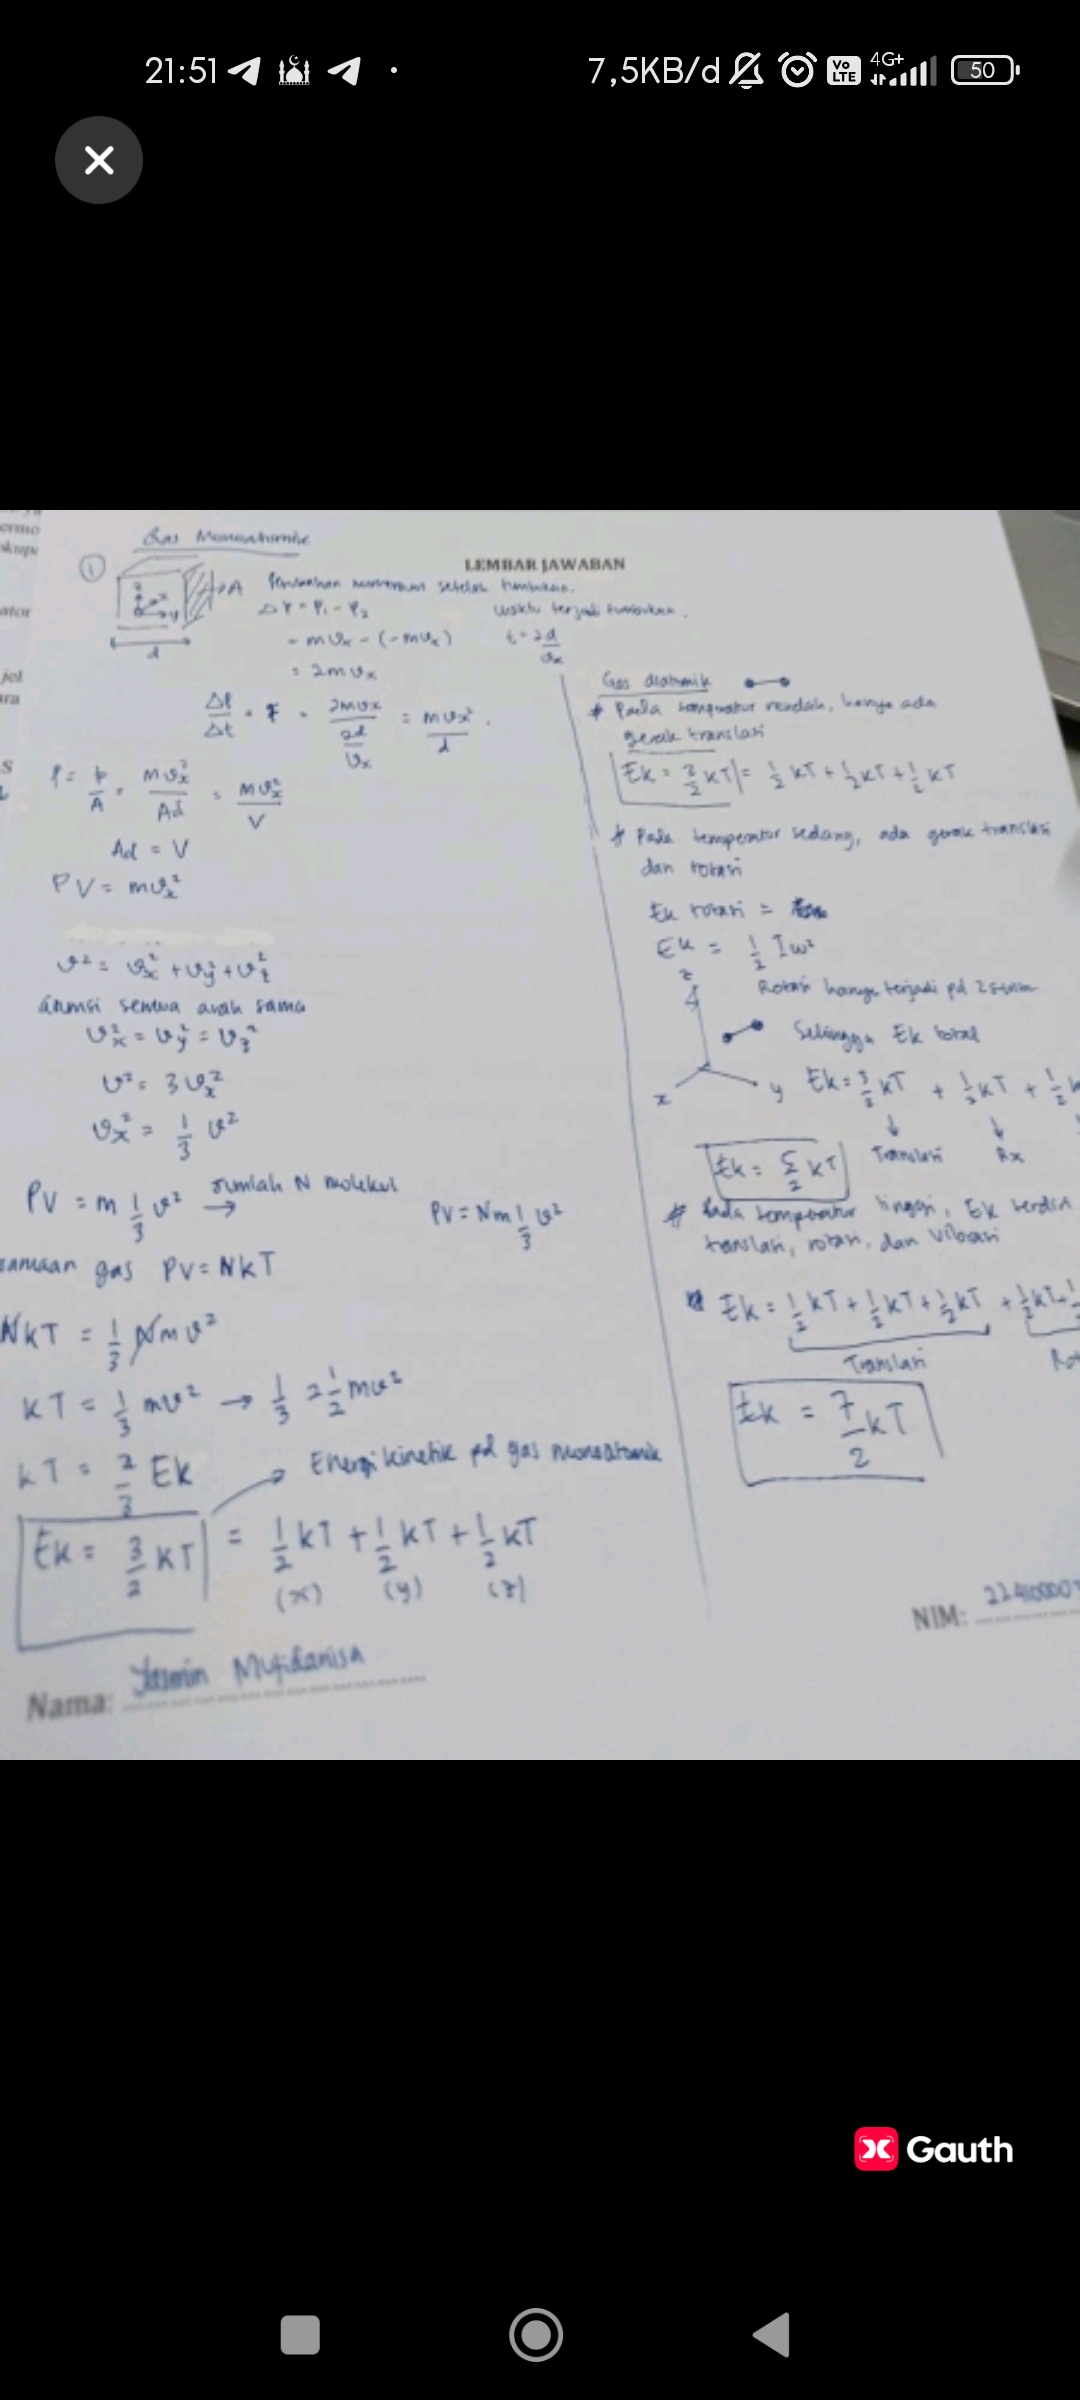 21:51
7,5KB/d
Vo LTE
4G+
50
Gas Monoatomik
LEMBAR JAWABAN
①
A
Perubahan momentum setelah tumbukan.
ΔP = P₁ - P₂
= mvₓ - (-mvₓ)
= 2mvₓ
waktu terjadi tumbukan.
t = 2d/vₓ
d
ΔP/Δt = F = 2mvₓ/(2d/vₓ) = mvₓ²/d.
P = F/A = mvₓ²/Ad = mvₓ²/V
Ad = V
PV = mvₓ²
v² = vₓ² + vy² + vz²
asumsi semua arah sama
vₓ² = vy² = vz²
v² = 3vₓ²
vₓ² = 1/3 v²
PV = m 1/3 v² → jumlah N molekul
PV = Nm 1/3 v²
samaan gas PV = NkT
NkT = 1/3 Nmv²
kT = 1/3 mv² → 1/3 2 1/2 mv²
kT = 2/3 Ek
Energi kinetik pd gas monoatomik
Ek = 3/2 kT = 1/2 kT + 1/2 kT + 1/2 kT
(x) (y) (z)
Nama: Yasmin Mufidanisa
Gas diatomik
* Pada temperatur rendah, hanya ada
gerak translasi
Ek = 3/2 kT = 1/2 kT + 1/2 kT + 1/2 kT
* Pada temperatur sedang, ada gerak translasi
dan rotasi
Ek rotasi =
Ek = 1/2 Iω²
Rotasi hanya terjadi pd 2 sumbu
z
x
y
Sehingga Ek total
Ek = 3/2 kT + 1/2 kT + 1/2 k
Translasi Rx
Ek = 5/2 kT
* Pada temperatur tinggi, Ek terdiri
translasi, rotasi, dan vibrasi
Ek = 1/2 kT + 1/2 kT + 1/2 kT + 1/2 kT + 1
Translasi Rot
Ek = 7/2 kT
NIM:
Gauth